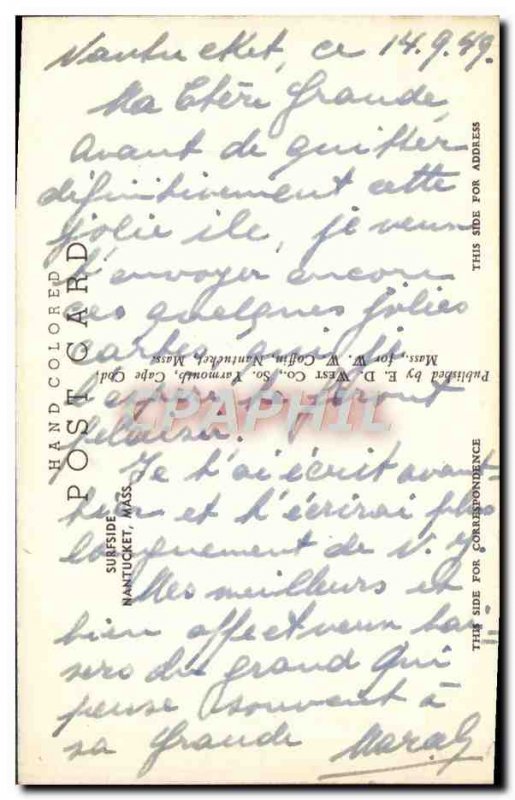 Nantucket, ce 14.9.49.
Ma Chère Grande,
Avant de quitter
définitivement cette
jolie ile, je veux
t'envoyer encore
ces quelques jolies
cartes, qui, je
l'espère, te feront
plaisir.
Je t'ai écrit avant-
hier et t'écrirai plus
longuement de N.Y.
Mes meilleurs et
bien affectueux bai-
sers du grand qui
pense souvent à
sa Grande
HAND COLORED
POST CARD
SURFSIDE
NANTUCKET, MASS.
Published by E. D. WEST CO., So. Yarmouth, Cape Cod,
Mass., for W. W. Coffin, Nantucket, Mass.
THIS SIDE FOR CORRESPONDENCE
THIS SIDE FOR ADDRESS
CPAPHIL